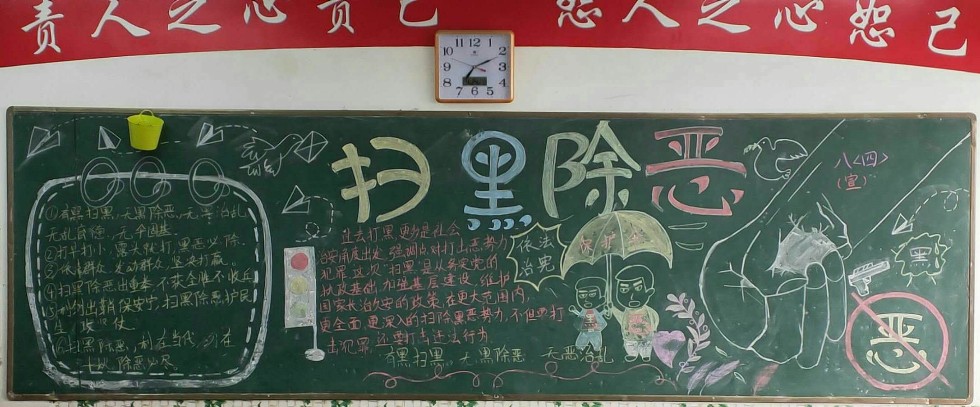 责人之心责己 恕己之心恕人
扫黑除恶
八<四>
(宣)
①有黑扫黑,无黑除恶,无恶治乱
无乱
②打早打小,露头就打,黑恶必除
③依靠群众,发动群众,坚决打赢
④扫黑除恶出重拳 不获全胜不收兵
保安宁,扫黑除恶护民
生
扫黑除恶,利在当代
过去打黑,更多是社会
治安角度出发,强调点对打击黑恶势力
犯罪 这次"扫黑"是从夯实党的
执政基础、加强基层建设、维护
国家长治久安的政策,在更大范围内,
更全面,更深入的扫除黑恶势力,不但要打
击犯罪,还要打击违法行为
有黑扫黑 无黑除恶 无恶治乱
依法
治
保护伞
黑
恶